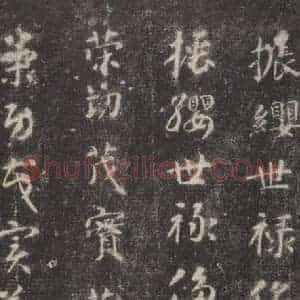 振纓世祿侈
振纓世祿侈
策功茂實
策功茂實
Shufaziliao.COM